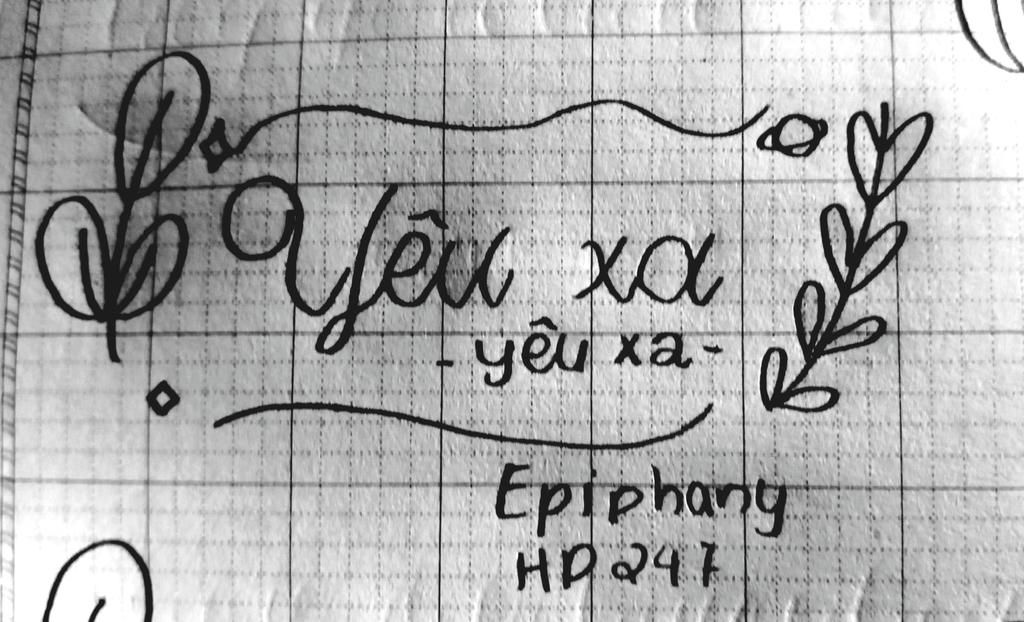 Yêu xa
- yêu xa -
Epiphany
HD247